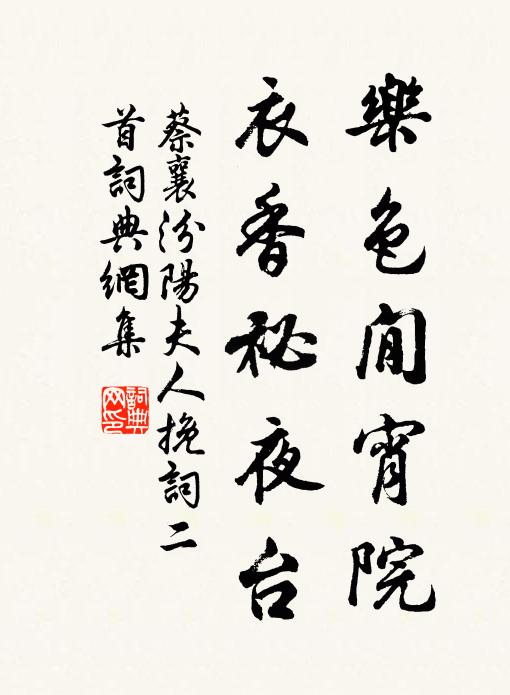 樂色閒宵院
衣香秘夜台
蔡襄汾陽夫人挽詞二
首詞典網集
詞典
网印